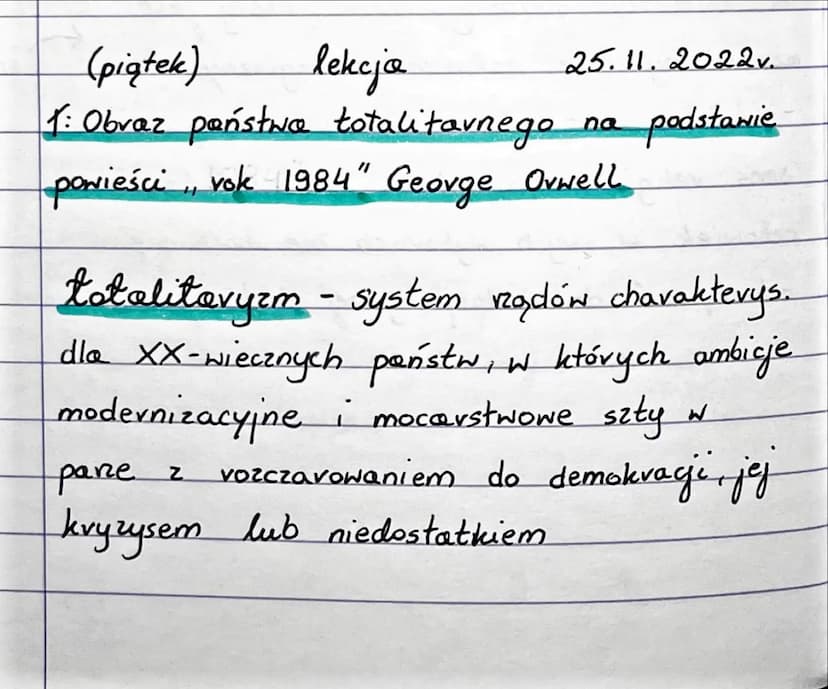 (piątek) lekcja 25.11.2022r.
T: Obraz państwa totalitarnego na podstawie
powieści „rok 1984" George Orwell
totalitaryzm - system rządów charakterys.
dla XX-wiecznych państw, w których ambicje
modernizacyjne i mocarstwowe szły w
parze z rozczarowaniem do demokracji, jej
kryzysem lub niedostatkiem